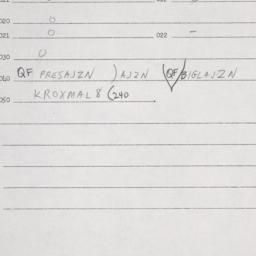 020 0
021 0 022 -
030 0
QF PRESAJZN ) AJZN (QF/BIGLAJZN
050 KROXMAL 8 (240